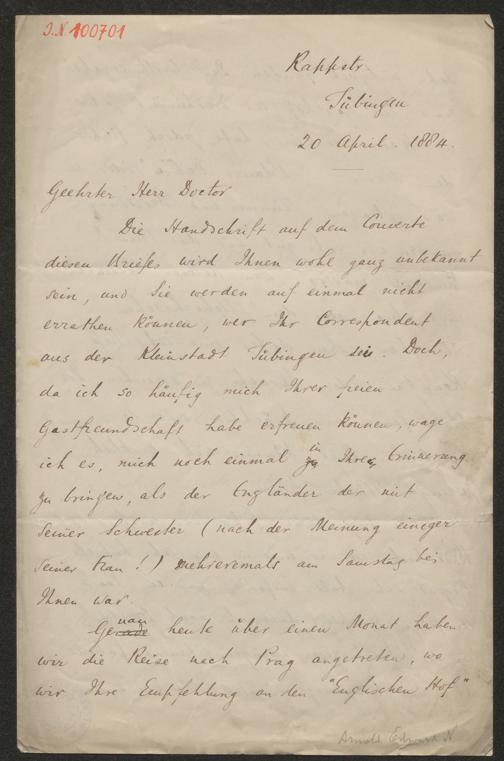 I.N. 100701
Rappstr.
Tübingen
20 April. 1884.
Geehrter Herr Doctor
Die Handschrift auf dem Couverte
diesen Briefes wird Ihnen wohl ganz unbekannt
sein, und Sie werden auf einmal nicht
errathen können, wer Ihr Correspondent
aus der Kleinstadt Tübingen sei. Doch,
da ich so häufig mich Ihrer freien
Gastfreundschaft habe erfreuen können, wage
ich es, mich noch einmal zu in Ihre Erinnerung
zu bringen, als der Engländer der mit
seiner Schwester (nach der Meinung einiger
seiner Frau!) mehreremals am Samstag bei
Ihnen war.
Gerade nau heute über einen Monat haben
wir die Reise nach Prag angetreten, wo
wir Ihre Empfehlung an den "Englischen Hof"
Arnold Edward N.